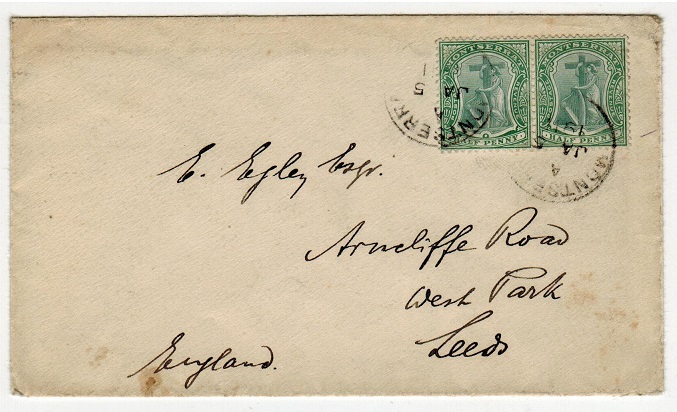 MONTSERRAT MONTSERRAT
HALF PENNY HALF PENNY
MONTSERRA
JA 5
MONTSERRA
4
JA 5
19
E. Egley Esqr.
Arncliffe Road
West Park
Leeds
England.